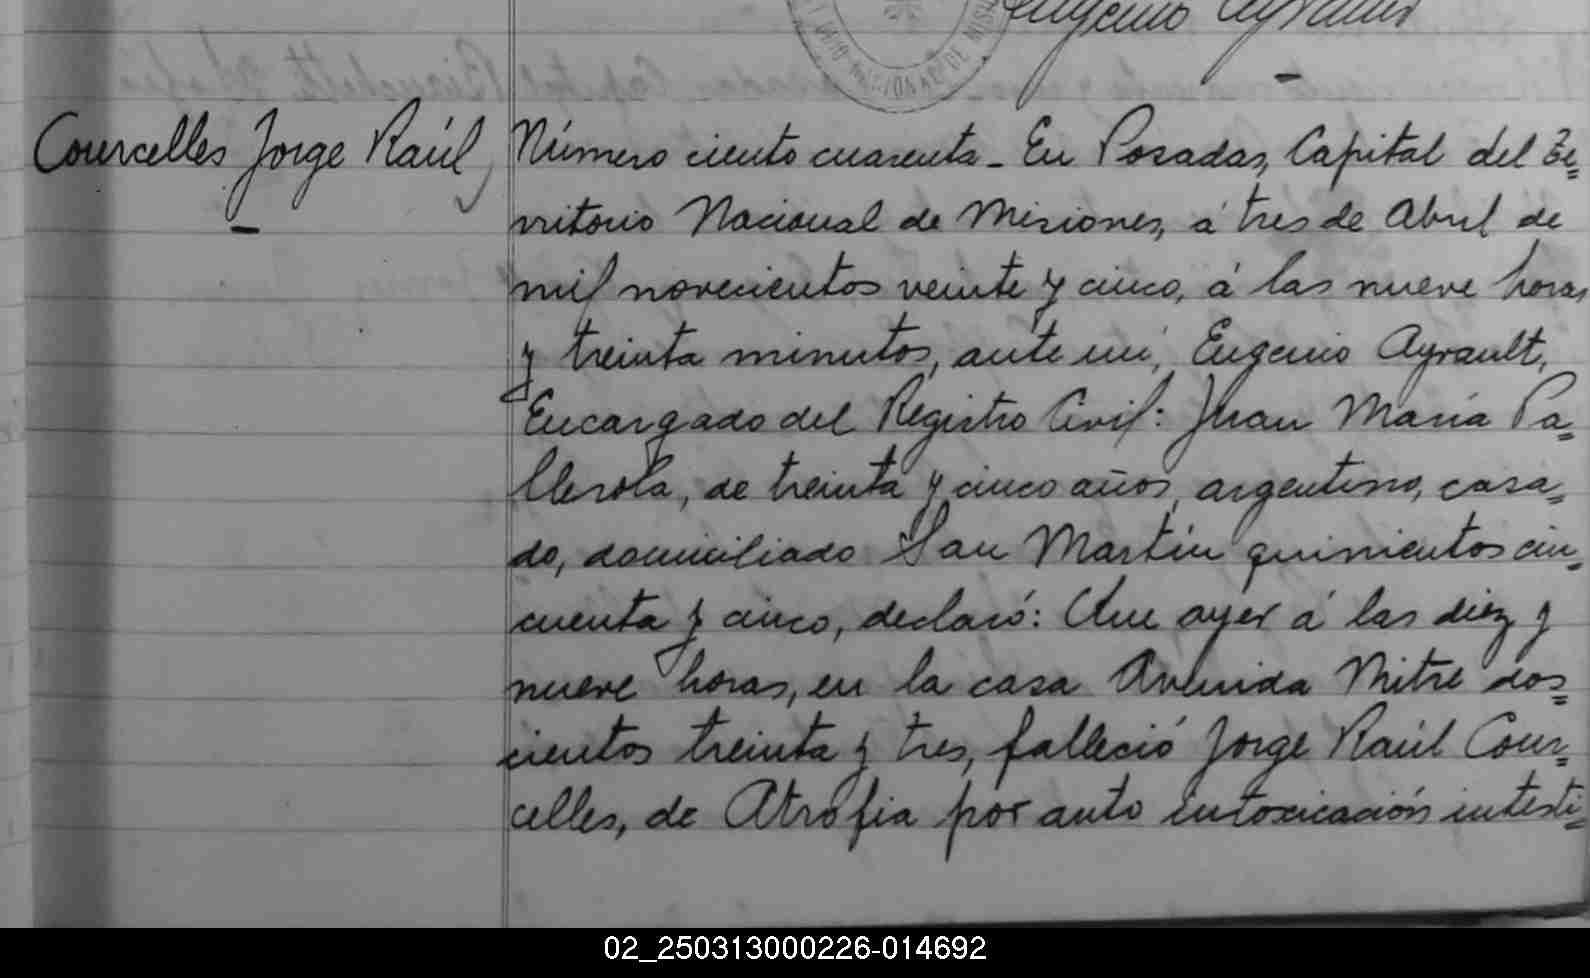 Eugenio Ayrault
NACIONAL DE MIS
Courcelles Jorge Raúl,
Número ciento cuarenta - En Posadas, Capital del Te=
rritorio Nacional de Misiones, á tres de Abril de
mil novecientos veinte y cinco, á las nueve horas
y treinta minutos, ante mi, Eugenio Ayrault,
Encargado del Registro Civil: Juan María Pa=
llerola, de treinta y cinco años, argentino, casa=
do, domiciliado San Martín quinientos cin=
cuenta y cinco, declaró: Que ayer á las diez y
nueve horas, en la casa Avenida Mitre dos=
cientos treinta y tres, falleció Jorge Raúl Cour=
celles, de Atrofia por auto intoxicación intesti=
02_250313000226-014692